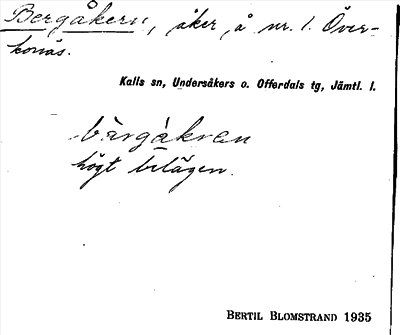 Bergåkern, åker, å nr. 1. Över-
konäs.
Kalls sn, Undersåkers o. Offerdals tg, Jämtl. l.
bärgåkren
högt belägen.
BERTIL BLOMSTRAND 1935